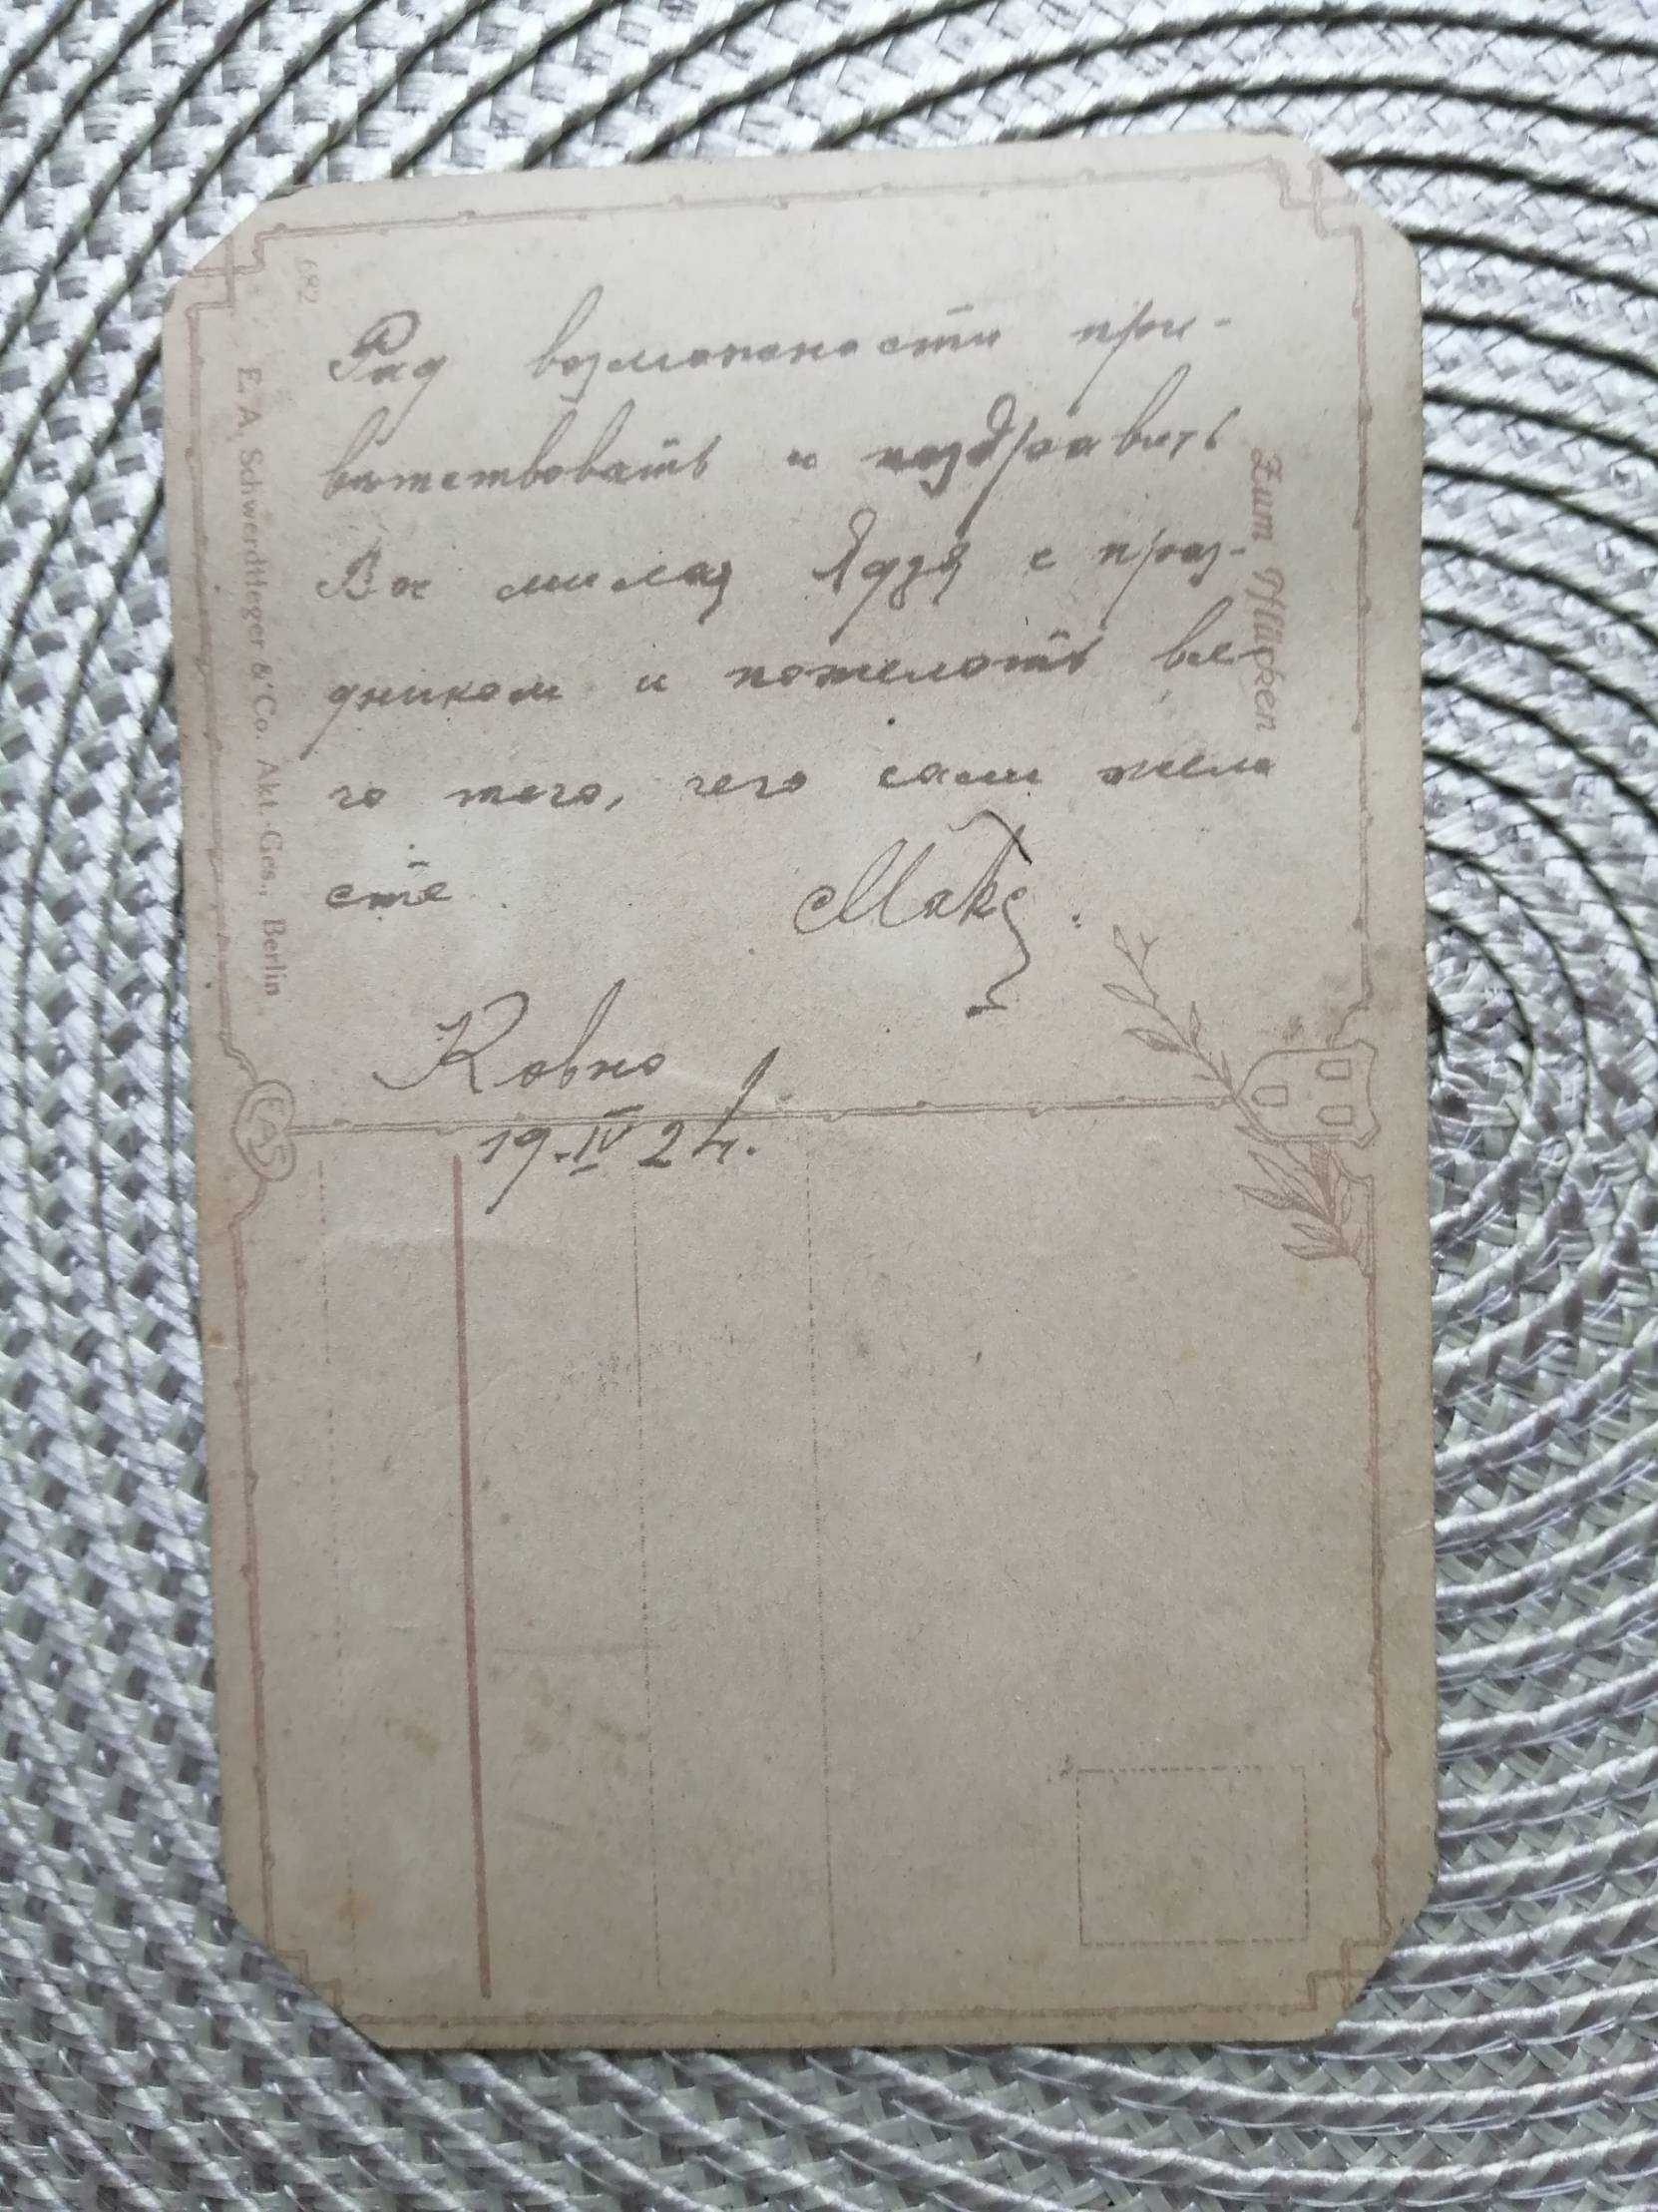 Рад возможности при-
вѣтствовать и поздравить
Вас милая Ядзя с праз-
дником и пожелать все-
го того, чего сами жела
ете
Макс.
Ковно
19.IV 24.
682
E. A. Schwerdtfeger & Co. Akt.-Ges., Berlin
Zum Pflücken
EAS